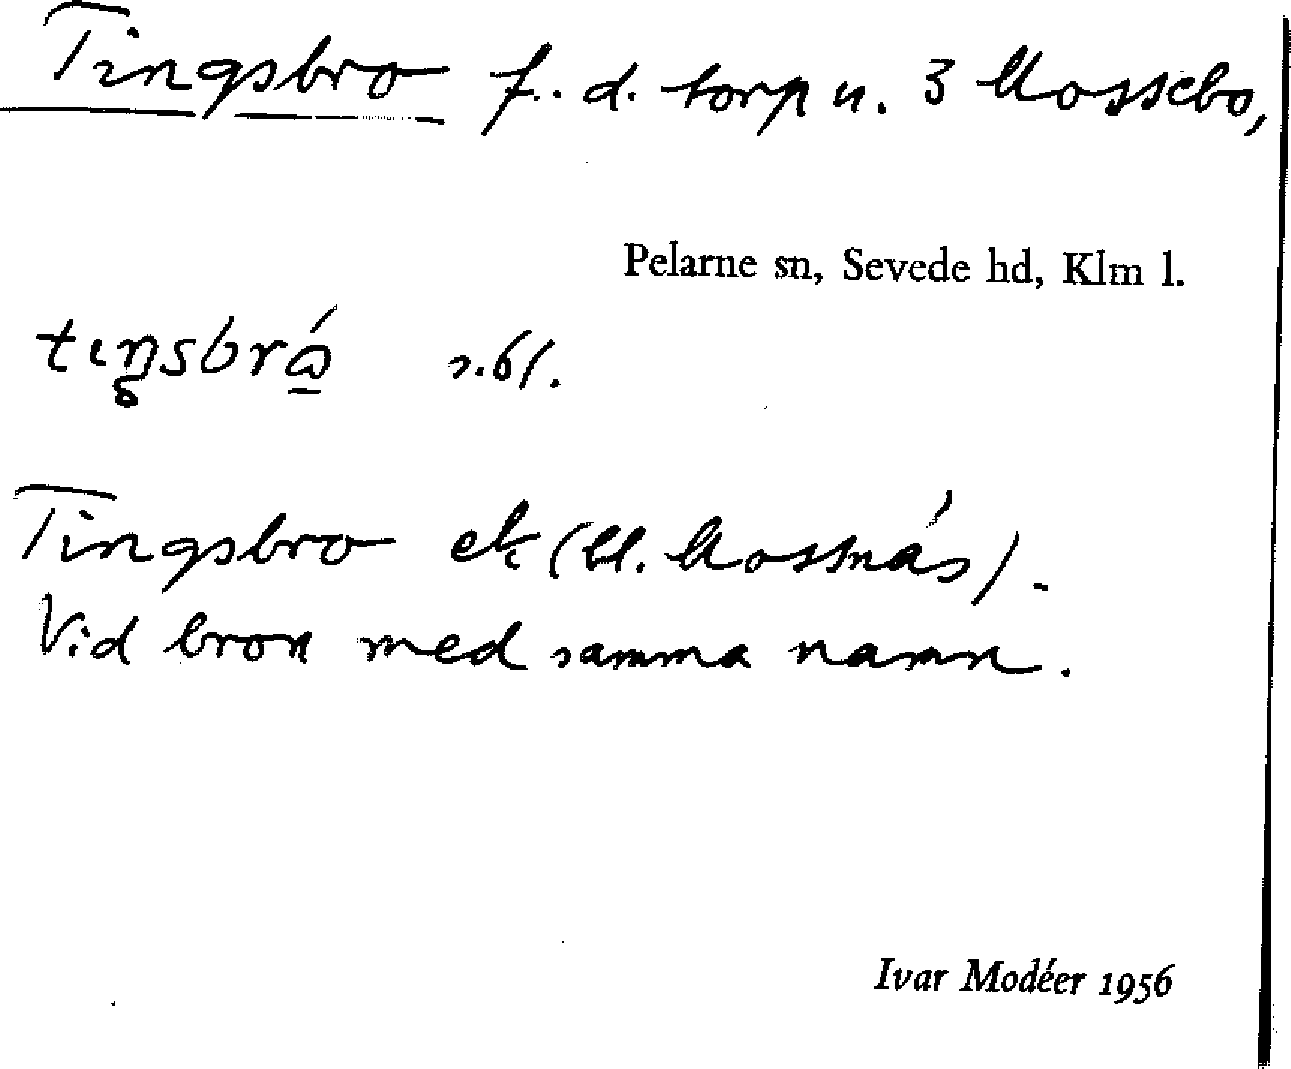 Tingsbro f. d. torp u. 3 Mossebo,
Pelarne sn, Sevede hd, Klm l.
s. 61.
Tingsbro ek (U. Mossnäs).
Vid bron med samma namn.
Ivar Modéer 1956